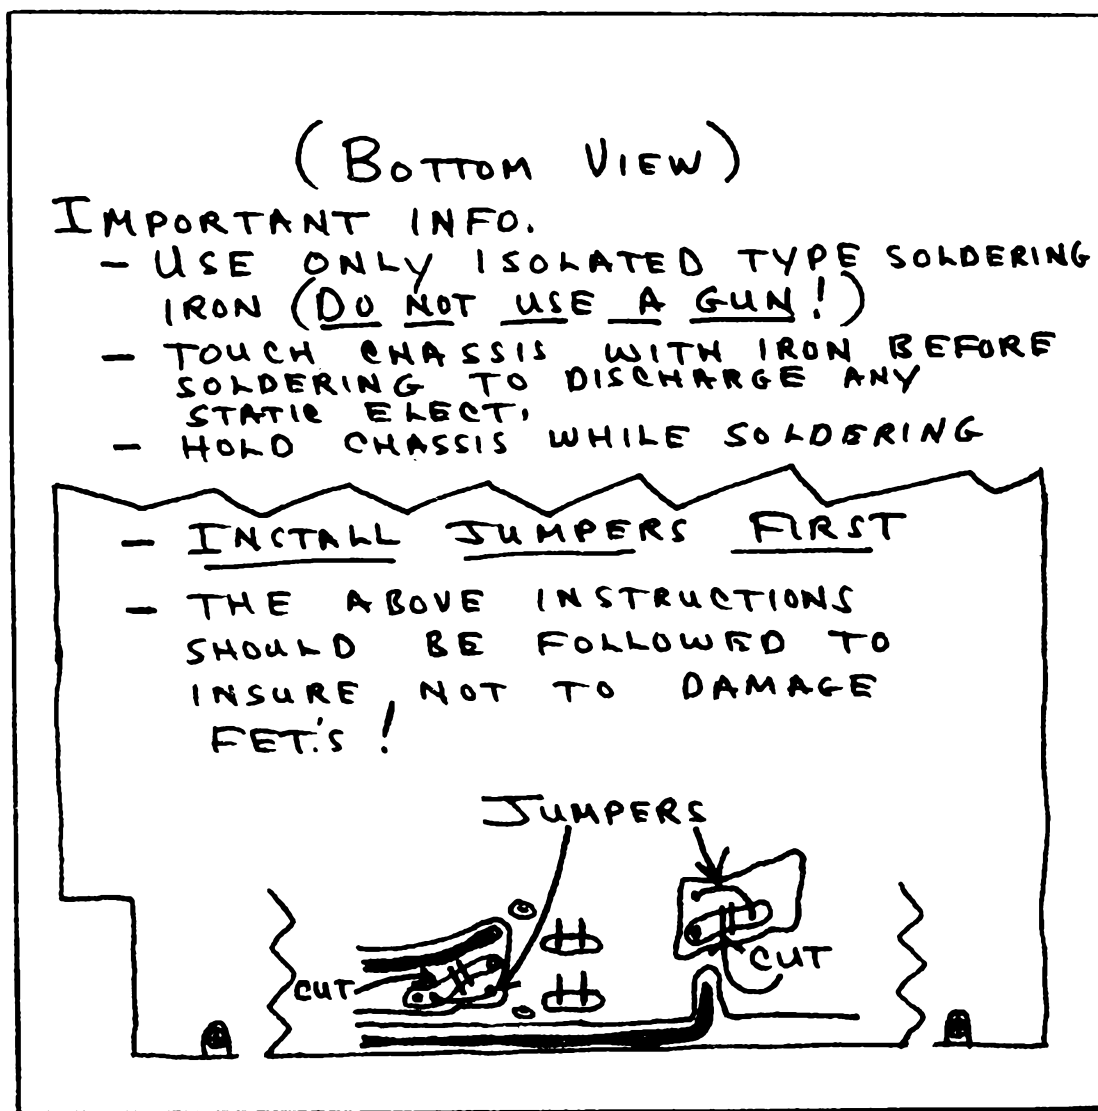 (BOTTOM VIEW)
IMPORTANT INFO.
- USE ONLY ISOLATED TYPE SOLDERING
IRON (DO NOT USE A GUN!)
- TOUCH CHASSIS WITH IRON BEFORE
SOLDERING TO DISCHARGE ANY
STATIC ELECT.
- HOLD CHASSIS WHILE SOLDERING
- INSTALL JUMPERS FIRST
- THE ABOVE INSTRUCTIONS
SHOULD BE FOLLOWED TO
INSURE NOT TO DAMAGE
FET'S!
JUMPERS
CUT
CUT